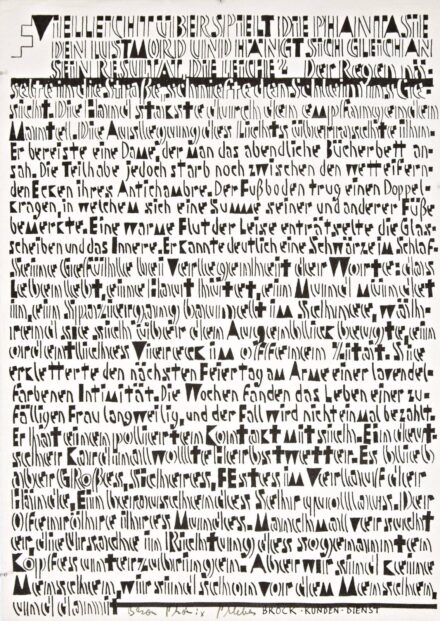 VIELLEICHT ÜBERSPIELT DIE PHANTASIE
DEN LUSTMORD UND HÄNGT SICH GLEICH AN
SEIN RESULTAT, DIE LEICHE? Der Regen nä-
selte in die Straße, schniefte den Schleim ins Ge-
sicht. Die Hand stakste durch den empfangenden
Mantel. Die Auslegung des Lichts überraschte ihn.
Er bereiste eine Dame, der Man das abendliche Bücherbett an-
sah. Die Teilhabe jedoch starb noch zwischen den wetteifern-
den Ecken ihres Antichambre. Der Fußboden trug einen Doppel-
kragen, in welchem sich eine Summe seiner und anderer Füße
bemerkte. Eine warme Flut der Leise enträtselte die Glas-
scheiben und das Innere. Er kannte deutlich eine Schwärze im Schlaf.
Seine Gefühle bei Verlegenheit der Worte: das
Leben lebt, eine Haut hütet, ein Mund mundet
in, ein Spaziergang baumelt im Schuhe, wäh-
rend sie sich über den Augenblick beugte, ein
ordentliches Viereck im offenen Zitat. Sie
erkletterte den nächsten Feiertag am Arme einer lavendel-
farbenen Intimität. Die Wochen fanden das Leben einer zu-
fälligen Frau langweilig, und der Fall wird nicht einmal bezahlt.
Er hat einen polierten Kontakt mit sich. Ein deut-
scher Kardinal wollte Herbstwetter. Es blieb
aber Großes, Sicheres, FEstes im Verlauf der
Hände. Ein berauschendes Sehr quoll aus. Der
Ofenröhre ihres Mundes. Manchmal versucht
er die Urkache in Richtung des sogenannten
Kopfes unterzubringen. Aber wir sind keine
Menschen, wir sind schon vor dem Menschen,
und damit
BROCK · KUNDEN · DIENST